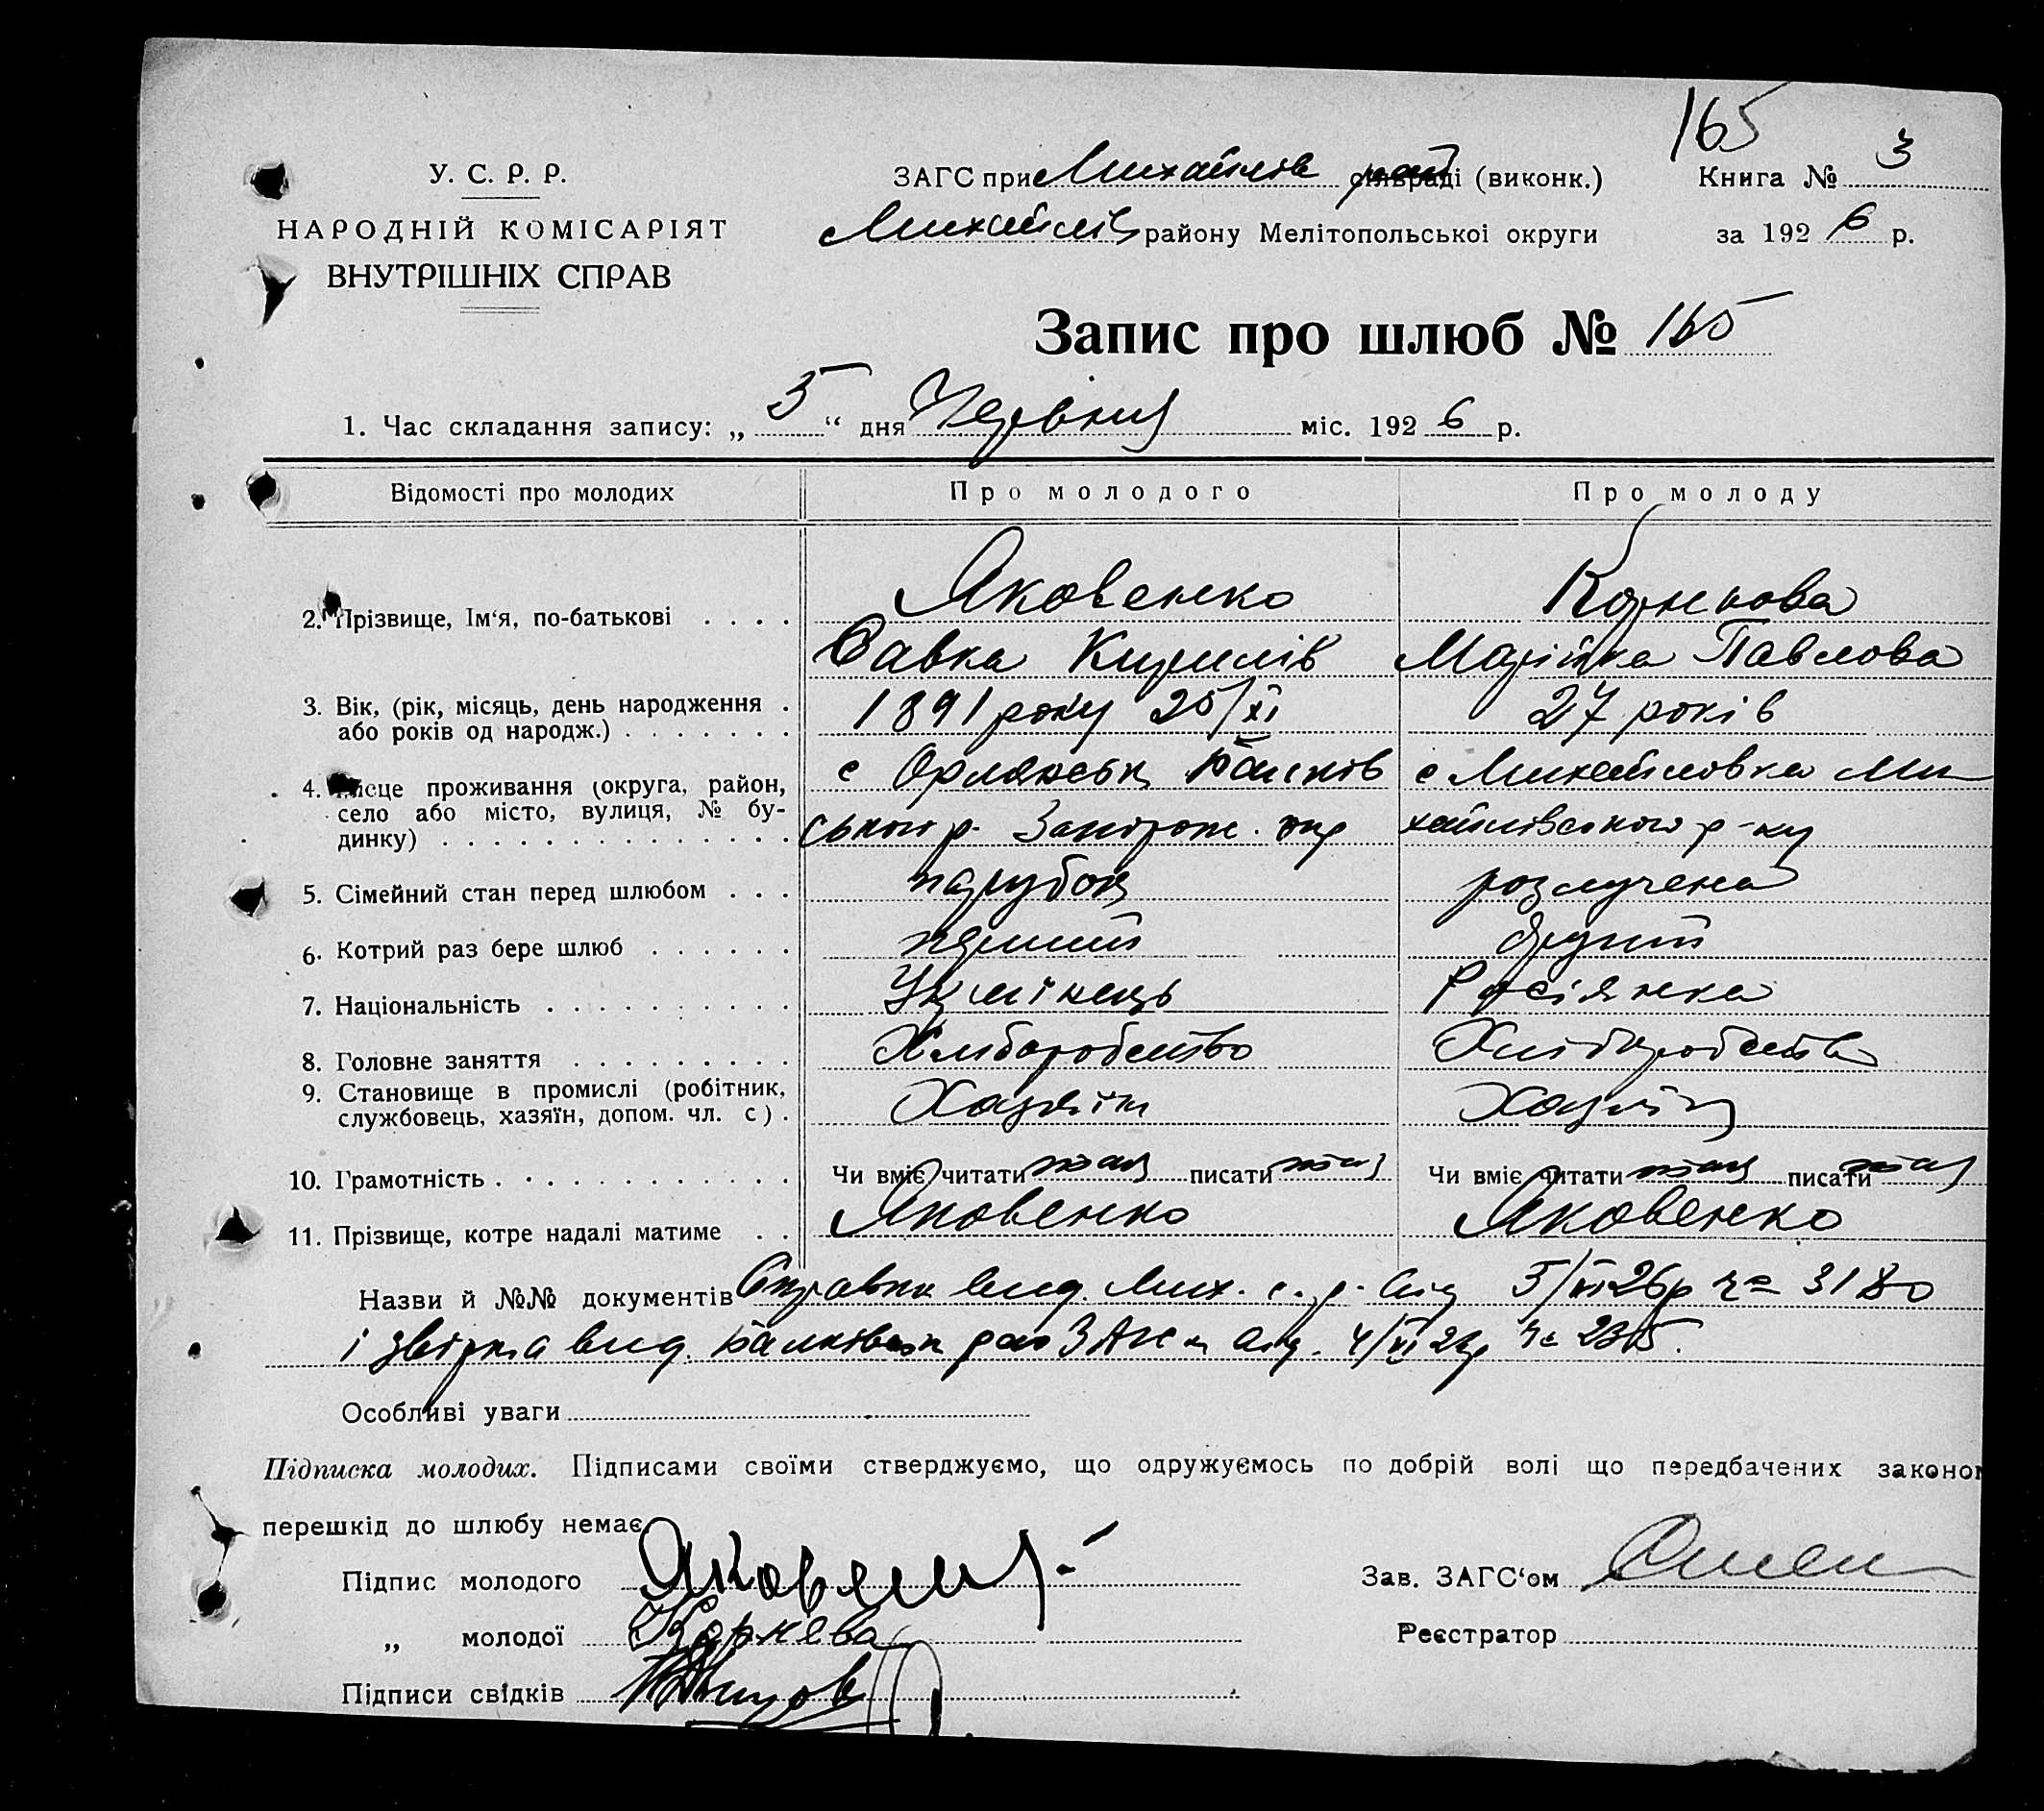 165
У. С. Р. Р.
НАРОДНІЙ КОМІСАРІЯТ
ВНУТРІШНІХ СПРАВ
ЗАГС при Михайлів сільраді (виконк.) Книга № 3
Михайлів району Мелітопольської округи за 1926 р.
Запис про шлюб № 165
1. Час складання запису: „5“ дня Червня міс. 1926 р.
Відомості про молодих Про молодого Про молоду
2. Прізвище, Ім‘я, по-батькові . . . . Яковенко Корнєова
Савка Кирилів Марійка Павлова
3. Вік, (рік, місяць, день народження . 1891 року 25/XI 27 років
або років од народж.) . . . . . . .
4. Місце проживання (округа, район, с Орлянськ Балків с Михайловка Ми
село або місто, вулиця, № бу-
динку) . . . . . . . . . . . . . . ського р. Запорож. окр хайлівського р-ку
5. Сімейний стан перед шлюбом . . . парубок розлучена
6. Котрий раз бере шлюб . . . . . . перший другий
7. Національність . . . . . . . . . . Українець Росіянка
8. Головне заняття . . . . . . . . . Хліборобство Хліборобство
9. Становище в промислі (робітник,
службовець, хазяїн, допом. чл. с) . Хазяїн Хазяїн
10. Грамотність . . . . . . . . . . . . Чи вміє читати писати Чи вміє читати писати
11. Прізвище, котре надалі матиме . . Яковенко Яковенко
Назви й №№ документів Справка вид. Мих. с. р. від 5/VI 26р № 3180
і звірка вид. Балківськ рай ЗАГС від. 4/VI 26р №
Особливі уваги
Підписка молодих. Підписами своїми стверджуємо, що одружуємось по добрій волі що передбачених законом
перешкід до шлюбу немає
Підпис молодого Яковенко Зав. ЗАГС‘ом
„ молодої Корнева Реєстратор
Підписи свідків